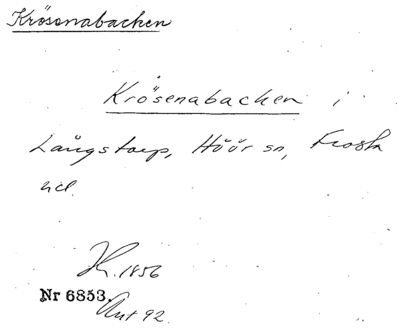 Krösenabacken
Krösenabacken i
Långstorp, Höör sn, Frosta
hd.
1856
Nr 6853.
Ant 92.